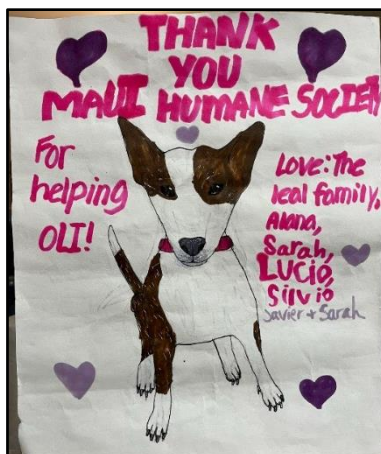 THANK
YOU
MAUI HUMANE SOCIETY
For
helping
OLI!
Love: The
leal family,
Alana,
Sarah,
LUCIO,
Silvio
Javier + Sarah